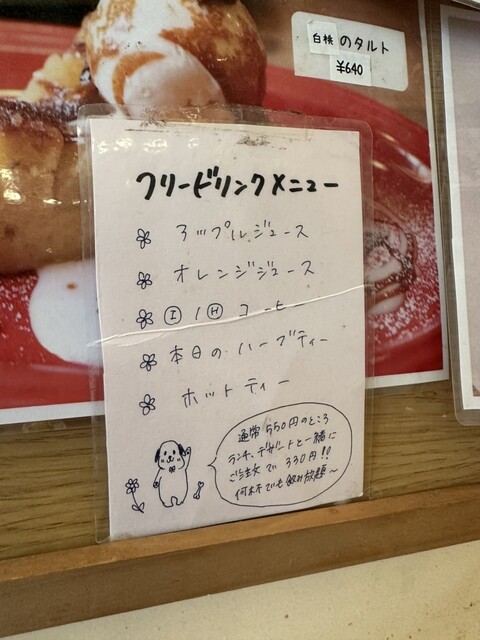 白桃のタルト
¥640
フリードリンクメニュー
アップルジュース
オレンジジュース
Ⓘ/Ⓗ コーヒー
本日のハーブティー
ホットティー
通常550円のところ
ランチ、デザートと一緒に
ご注文で330円!!
何杯でも飲み放題〜